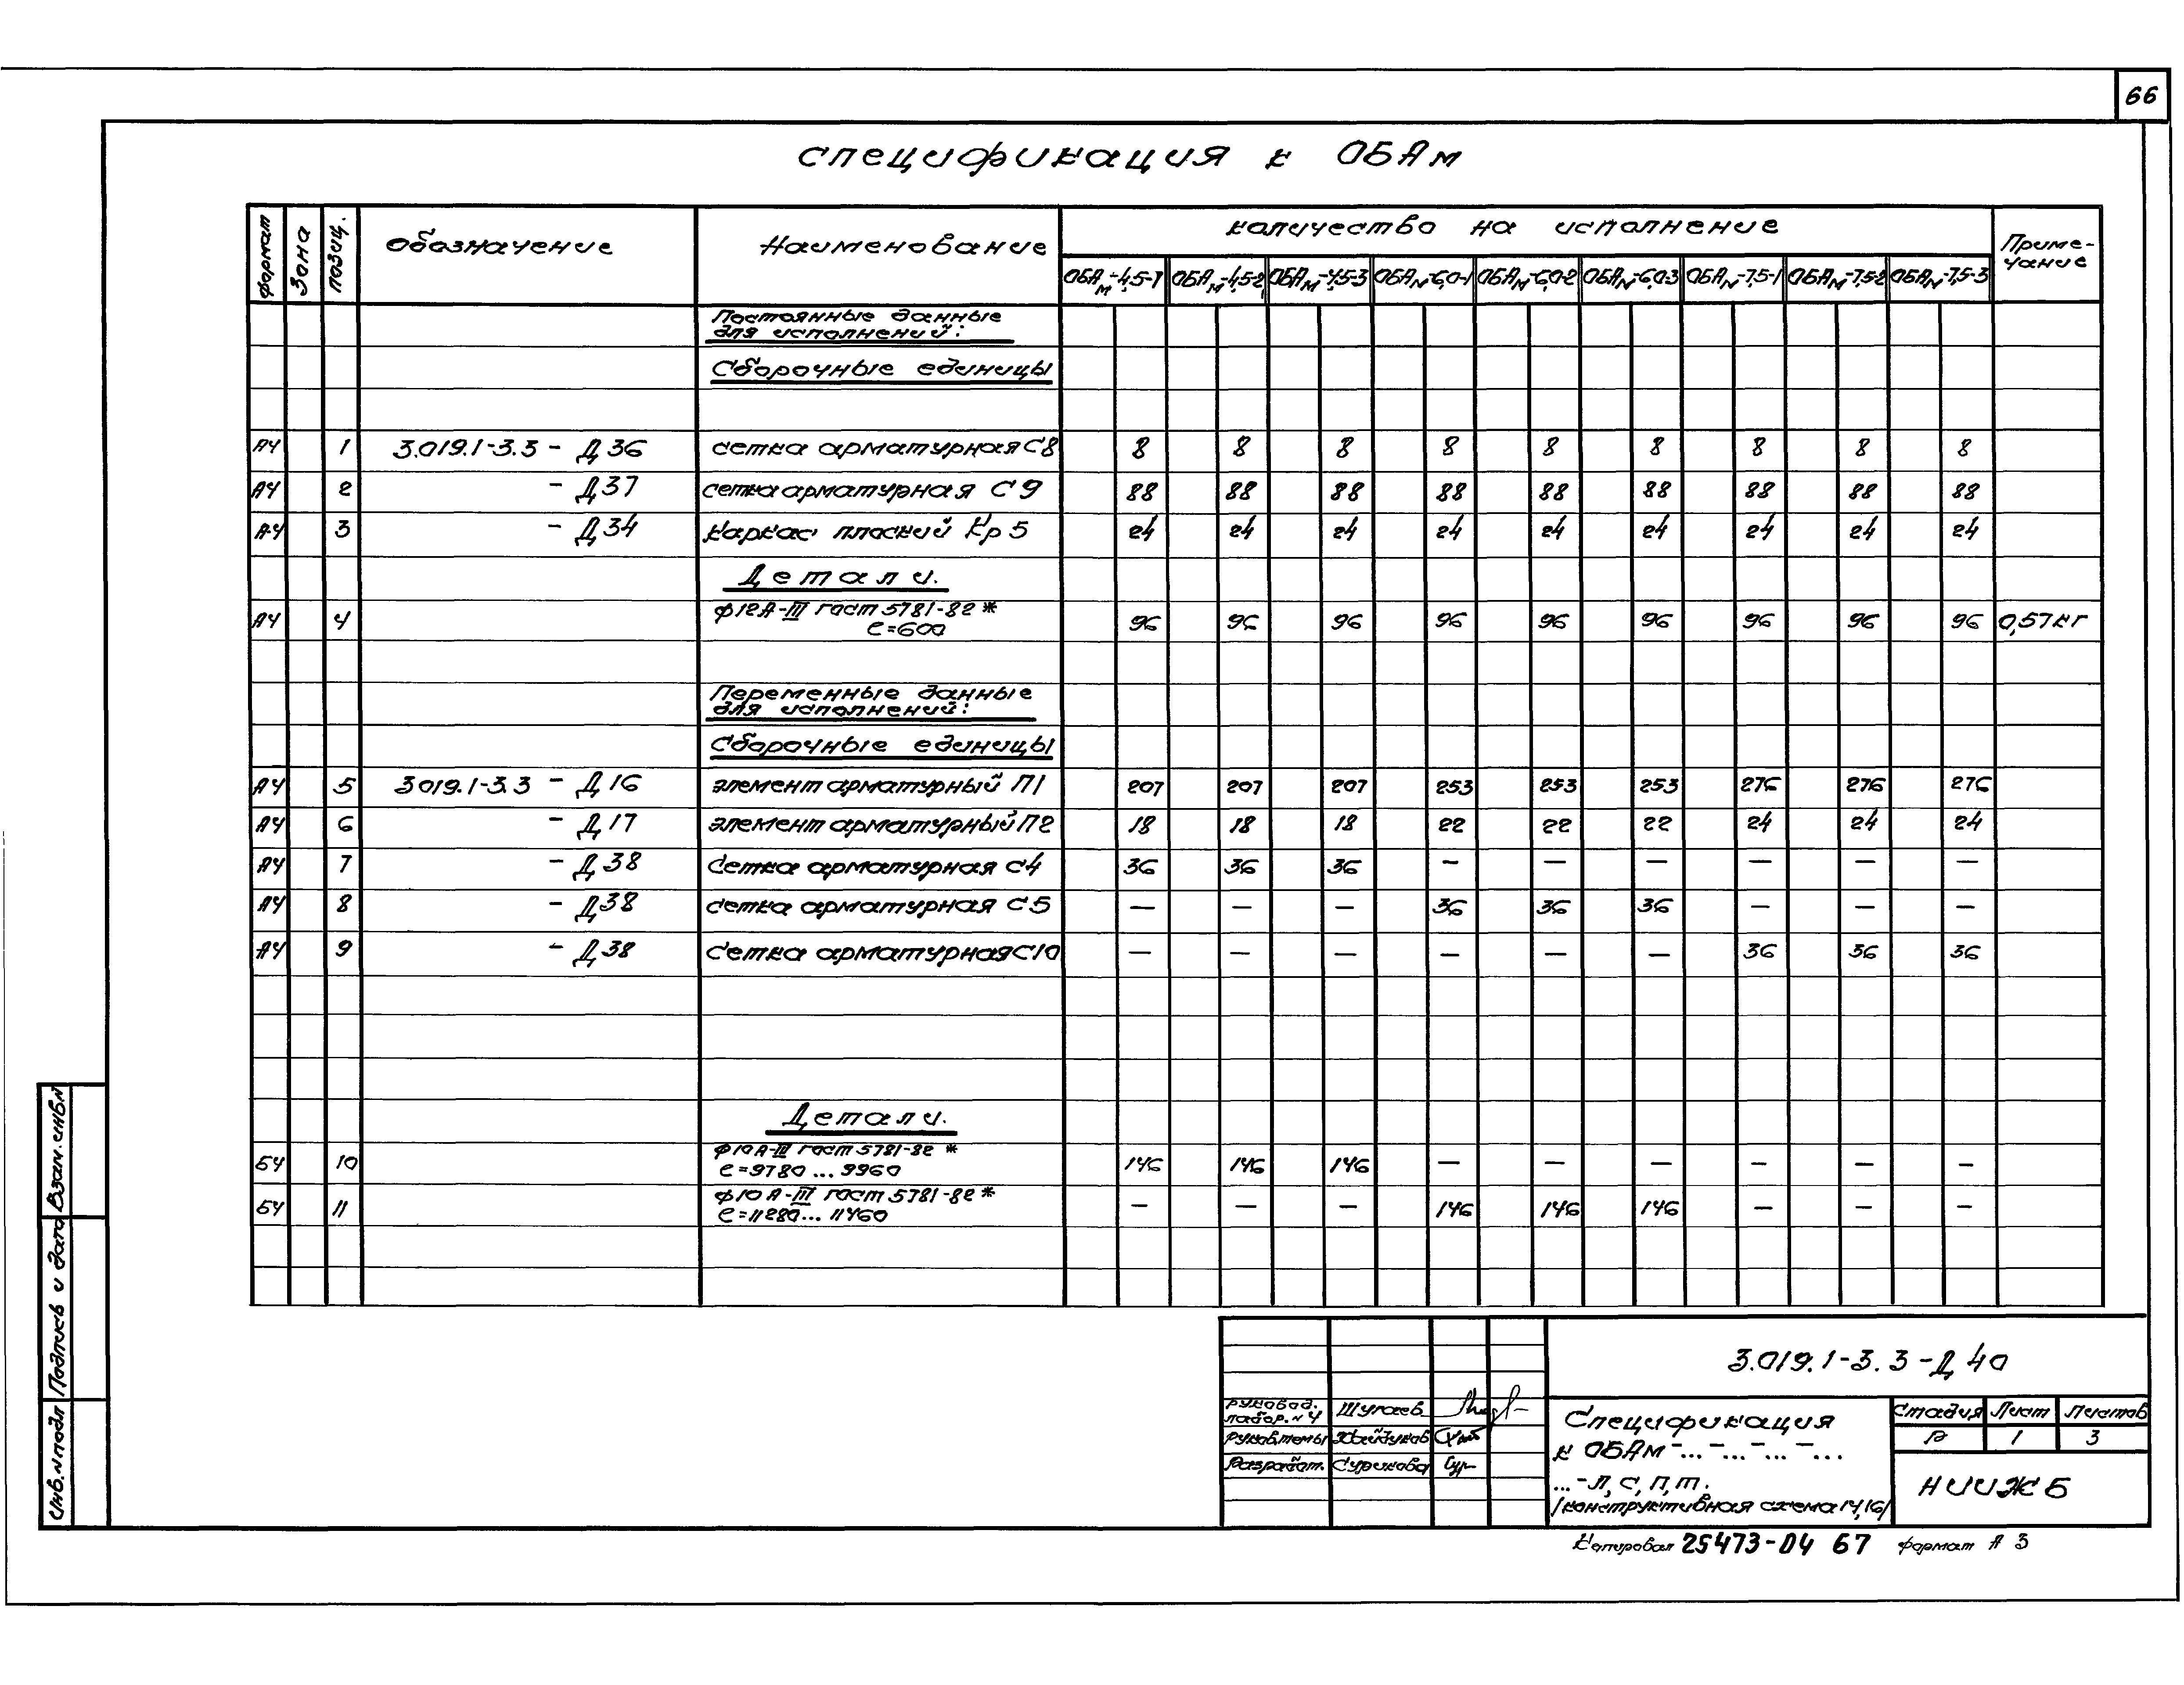 66
Спецификация к ОБАм
Формат Зона Позиц. Обозначение Наименование Количество на исполнение Приме-
чание
ОБАм-4,5-1 ОБАм-4,5-2 ОБАм-4,5-3 ОБАм-6,0-1 ОБАм-6,0-2 ОБАм-6,0-3 ОБАм-7,5-1 ОБАм-7,5-2 ОБАм-7,5-3
Постоянные данные
для исполнений:
Сборочные единицы
А4 1 3.019.1-3.3 - Д36 сетка арматурная С8 8 8 8 8 8 8 8 8 8
А4 2 - Д37 сетка арматурная С9 88 88 88 88 88 88 88 88 88
А4 3 - Д34 каркас плоский Кр5 24 24 24 24 24 24 24 24 24
Детали.
А4 4 ф12А-III гост 5781-82* 96 96 96 96 96 96 96 96 96 0,57кг
ℓ=600
Переменные данные
для исполнений:
Сборочные единицы
А4 5 3.019.1-3.3 - Д16 элемент арматурный П1 207 207 207 253 253 253 276 276 276
А4 6 - Д17 элемент арматурный П2 18 18 18 22 22 22 24 24 24
А4 7 - Д38 Сетка арматурная С4 36 36 36 — — — — — —
А4 8 - Д38 сетка арматурная С5 — — — 36 36 36 — — —
А4 9 - Д38 Сетка арматурная С10 — — — — — — 36 36 36
Детали.
БЧ 10 ф10А-III гост 5781-82* 146 146 146 — — — — — —
ℓ=9780...9960
БЧ 11 ф10А-III гост 5781-82* — — — 146 146 146 — — —
ℓ=11280...11460
Инв.N подл Подпись и дата Взам.инв.N
3.019.1-3.3-Д40
Руковод.
лабор.N4 Шугаев
Руков.темы Хайдуков
Разработ. Сурикова
Спецификация
к ОБАм-...-...-...-...
...-л, с, п, т.
/конструктивная схема 14,16/
Стадия Лист Листов
Р 1 3
НИИЖБ
Копировал 25473-04 67 формат А3